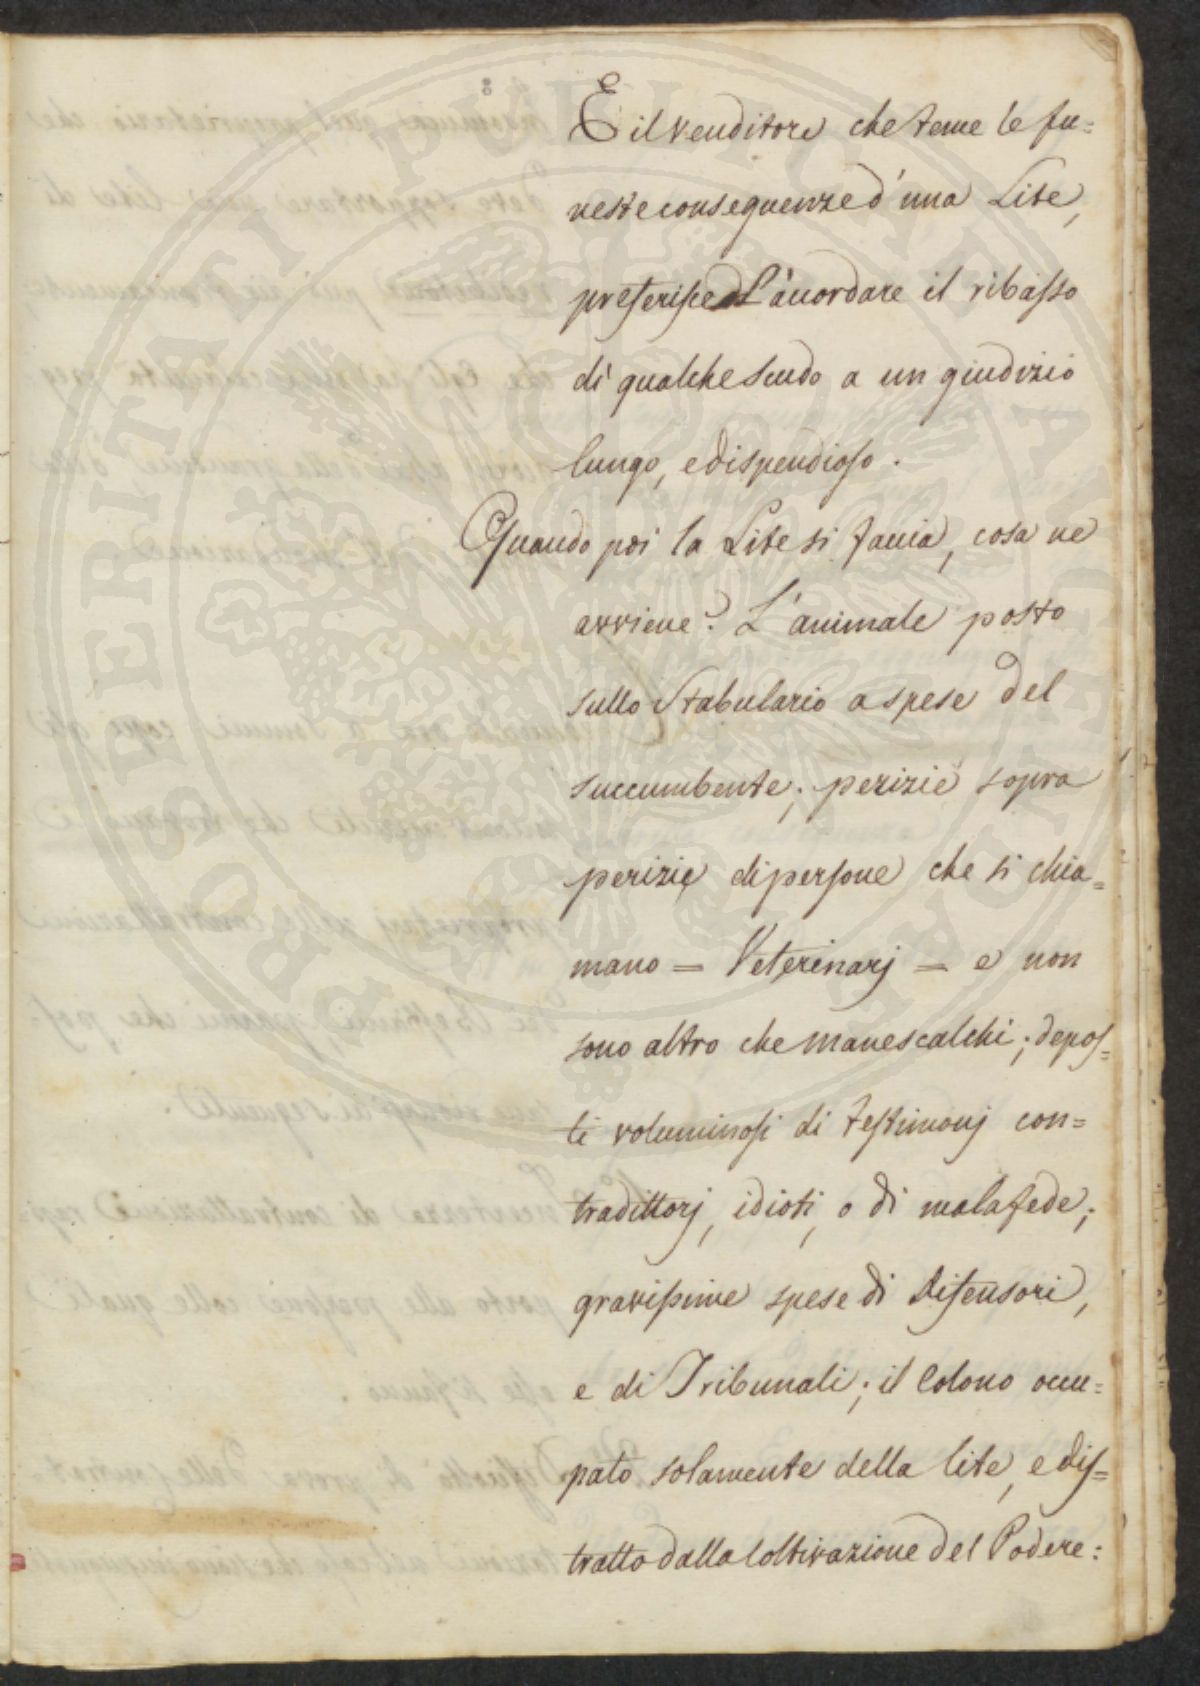 E il venditore che teme le fu=
neste conseguenze d'una Lite,
preferisce L'accordare il ribasso
di qualche scudo a un giudizio
lungo, e dispendioso.
Quando poi la Lite si faccia, cosa ne
avviene? L'animale posto
sullo Stabulario a spese del
succumbente; perizie sopra
perizie di persone che si chia=
mano = Veterinarj = e non
sono altro che Manescalchi; depos=
ti voluminosi di testimonj con=
tradittorj, idioti, o di malafede;
gravissime spese di Difensori,
e di Tribunali; il Colono occu=
pato solamente della lite, e dis=
tratto dalla Coltivazione del Podere:
PROSPERITATI PUBLICAE AUGENDAE